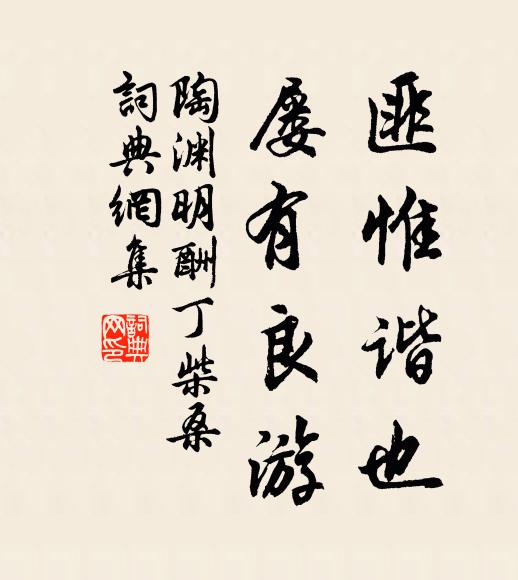 匪惟谐也
屡有良游
陶渊明酬丁柴桑
詞典網集
詞典
网印